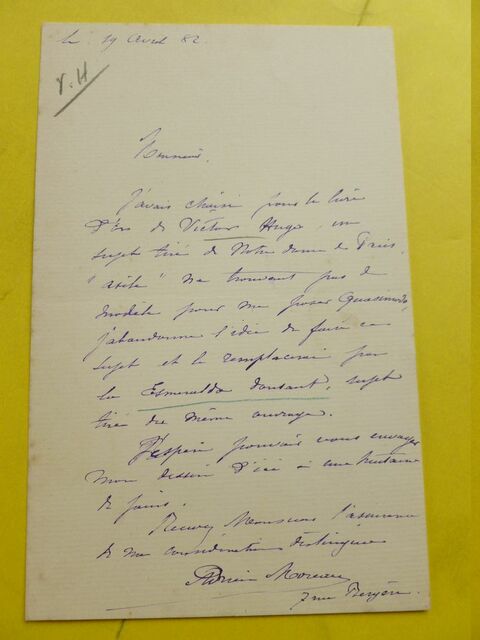 le 19 Avril 82.
V. H
Monsieur,
J'avais choisi pour le livre
d'Or de Victor Hugo, un
sujet tiré de Notre dame de Paris,
"asile" ne trouvant pas de
modèle pour me poser Quasimodo,
j'abandonne l'idée de faire ce
sujet et le remplacerai par
la Esmeralda dansant, sujet
tiré du même ouvrage.
J'espère pouvoir vous envoyer
mon dessin d'ici à une huitaine
de jours.
Recevez Monsieur l'assurance
de ma considération distinguée
Adrien Moreau
7 rue Bergère.